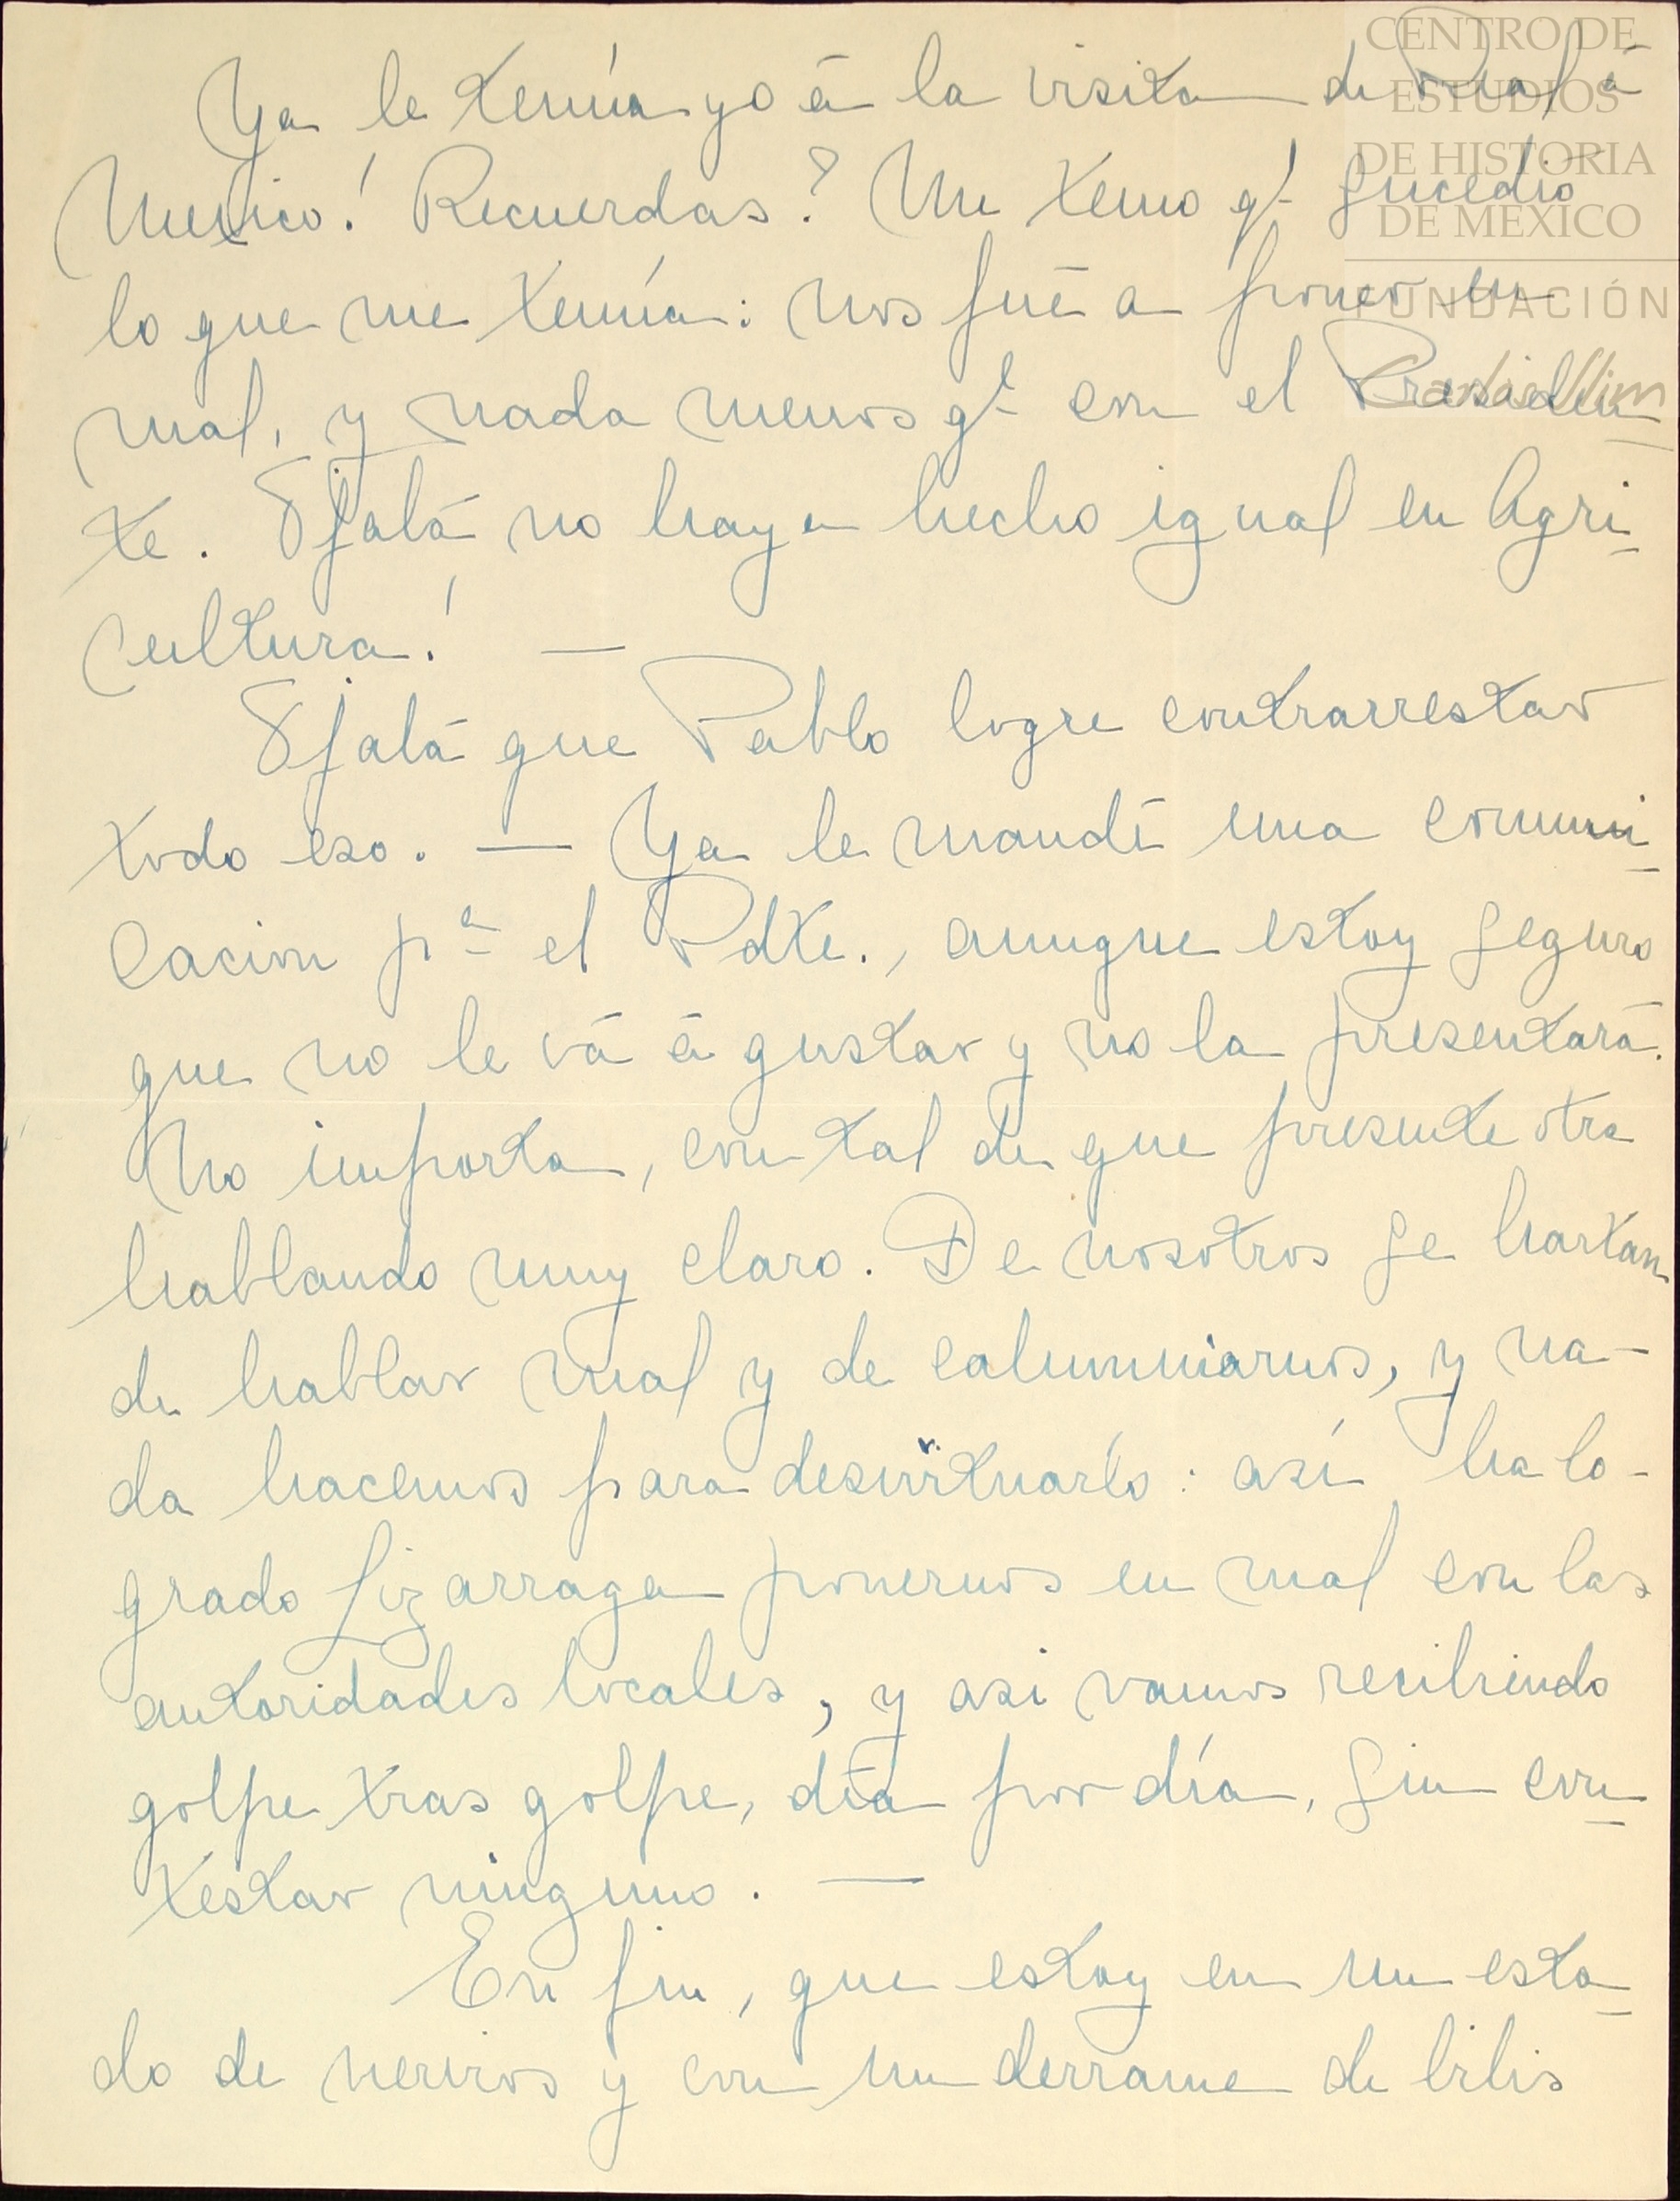 CENTRO DE
ESTUDIOS
DE HISTORIA
DE MÉXICO
FUNDACIÓN
Carlos Slim
Ya le temía yo á la visita de á
Mexico! Recuerdas? Me temo qe sucedio
lo que me temía: nos fué a poner en
mal, y nada menos qe con el Presiden-
te. Ojalá no haya hecho igual en Agri-
cultura! —
Ojalá que Pablo logre contrarrestar
todo eso. — Ya le mandé una comuni-
cacion pa el Pdte., aunque estoy seguro
que no le vá á gustar y no la presentará.
No importa, con tal de que presente otra
hablando muy claro. De nosotros se hartan
de hablar mal y de calumniarnos, y na-
da hacemos para desvirtuarlo: así ha lo-
grado Lizarraga ponernos en mal con las
autoridades locales, y asi vamos recibiendo
golpe tras golpe, día por día, sin con-
testar ninguno. —
En fin, que estoy en un esta-
do de nervios y con un derrame de bilis